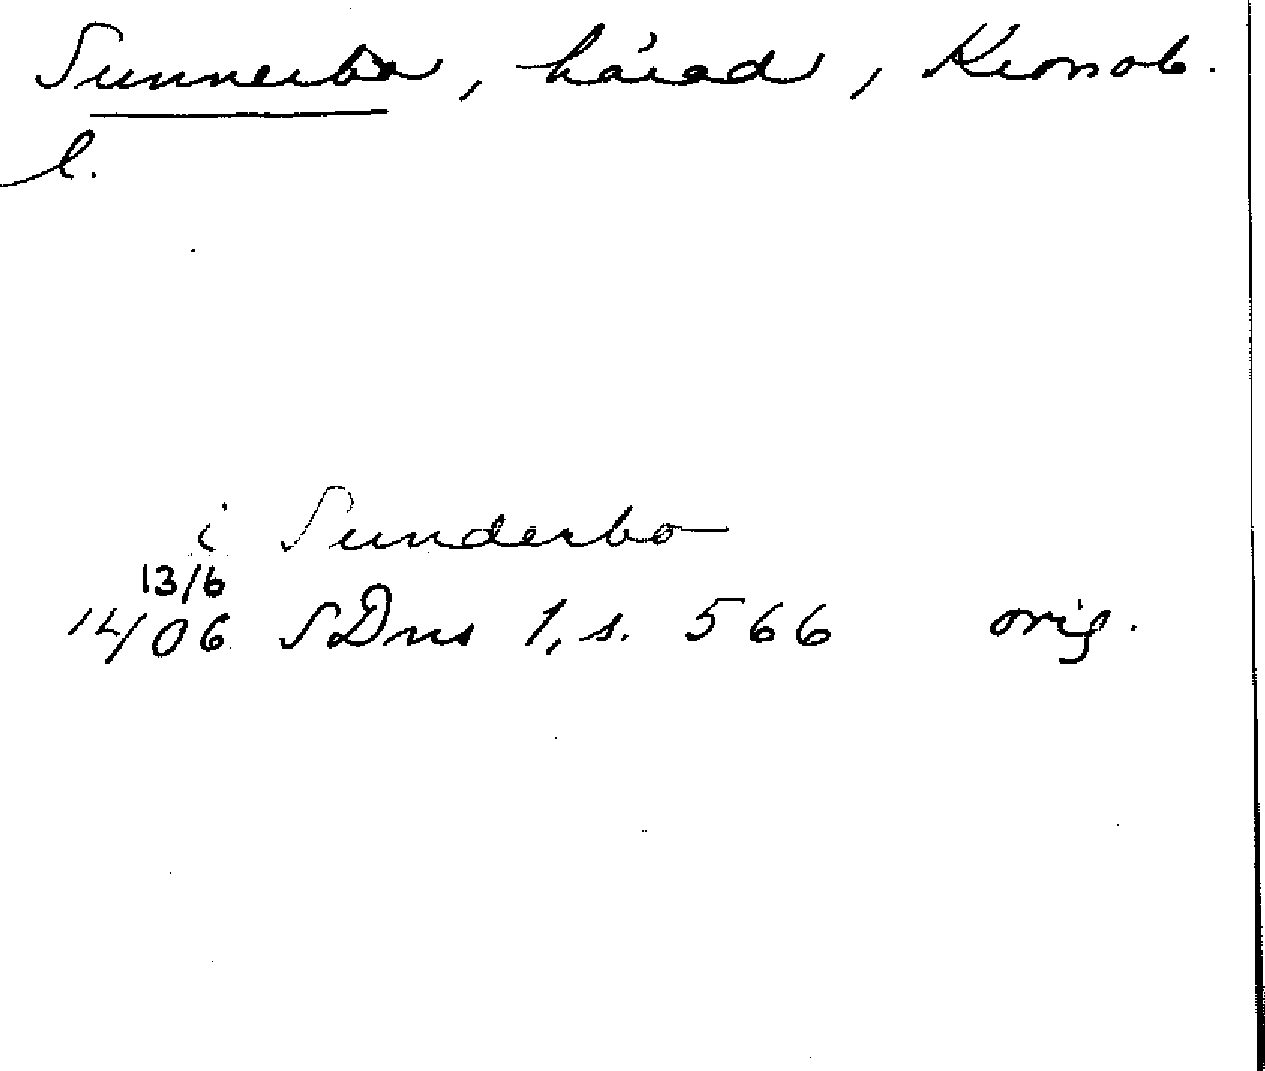 Sunnerbo, härad, Kronob.
l.
i Sunderbo
13/6
14/06 SDns 1, s. 566 orig.